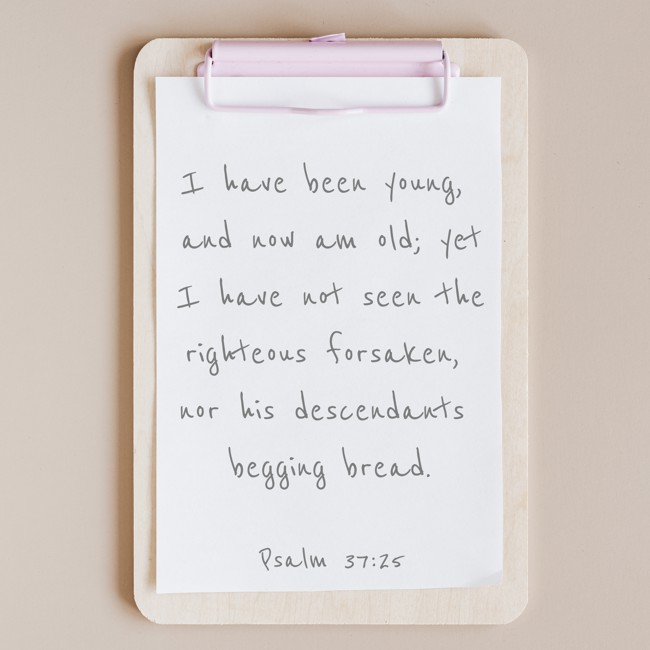 I have been young,
and now am old; yet
I have not seen the
righteous forsaken,
nor his descendants
begging bread.
Psalm 37:25